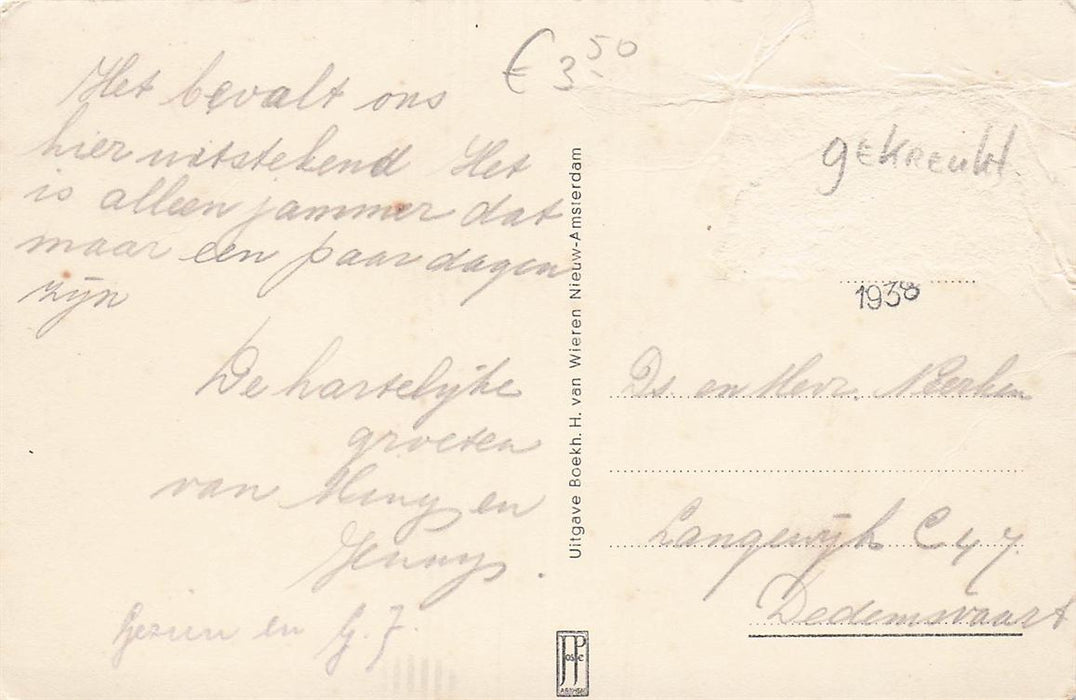 € 3.50
Het bevalt ons
hier uitstekend Het
is alleen jammer dat
maar een paar dagen
zijn
De hartelijke
groeten
van Miny en
Jenny.
Gezien en G. J.
Uitgave Boekh. H. van Wieren Nieuw-Amsterdam
JosPé
ARNHEM
geKREUKt.
1938
Ds. en Mevr.
Langewijk C 47.
Dedemsvaart